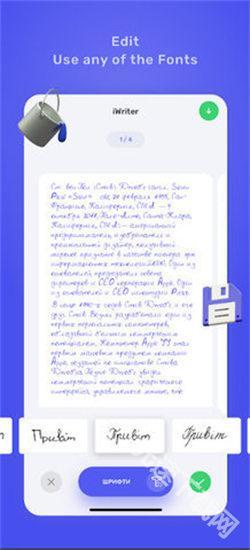 Edit
Use any of the Fonts
iWriter
1 / 4
Ст
Джобс
Сан-
Франциско, Калифорния, США — 5
октября 2011, Пало-Алто, Санта-Клара,
Калифорния, США) — американский
предприниматель
дизайнер, получивший
признание в качестве пионера эры
информационных технологий. Один из
основателей, председатель совета
директоров и CEO корпорации Apple. Один
из основателей и CEO киностудии Pixar.
В конце 1970-х годов Стив и его
друг Стив Возняк разработали один из
первых персональных компьютеров,
обладавший большим коммерческим
потенциалом. Компьютер Apple II стал
первым массовым продуктом компании
Apple, созданной по инициативе Стива
Джобса. Позднее Джобс увидел
коммерческий потенциал графического
интерфейса, управляемого мышью, что
Привіт
Привіт
Привіт
ШРИФТИ